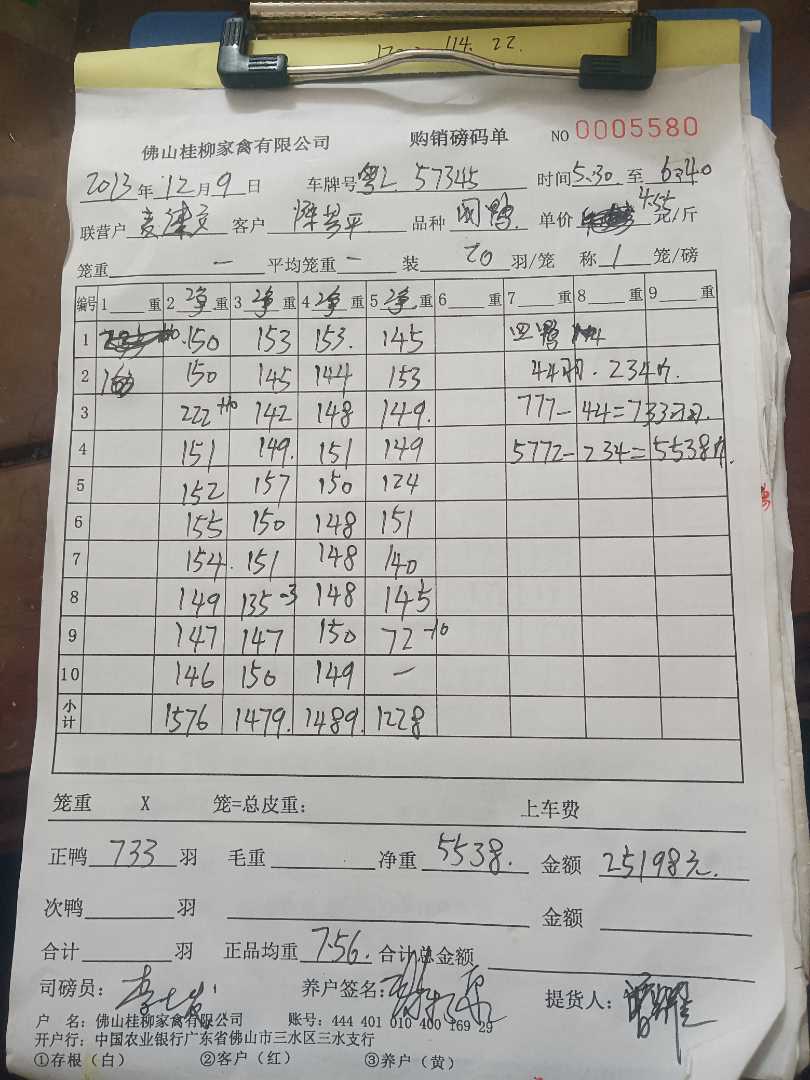 114.22.
佛山桂柳家禽有限公司 购销磅码单 NO 0005580
2013年12月9日 车牌号粤L 57345 时间5:30至6:40
联营户 客户 品种 单价 4.55元/斤
笼重 — 平均笼重 — 装 20 羽/笼 称 1 笼/磅
编号 1 重 2 净重 3 净重 4 净重 5 净重 6 重 7 重 8 重 9 重
1 150 153 153. 145
2 150 145 144 153 44羽. 234斤.
3 222 +10 142 148 149. 777-44=733羽.
4 151 149. 151 149 5772-234=5538斤.
5 152 157 150 124
6 155 150 148 151
7 154. 151 148 140
8 149 135 -3 148 145
9 147 147 150 72 -10
10 146 150 149 —
小计 1576 1479. 1489. 1228
笼重 X 笼=总皮重: 上车费
正鸭 733 羽 毛重 净重 5538. 金额 25198元.
次鸭 羽 金额
合计 羽 正品均重 7.56. 合计总金额
司磅员: 养户签名: 提货人:
户 名: 佛山桂柳家禽有限公司 账号: 444 401 010 400 169 29
开户行: 中国农业银行广东省佛山市三水区三水支行
①存根(白) ②客户(红) ③养户(黄)